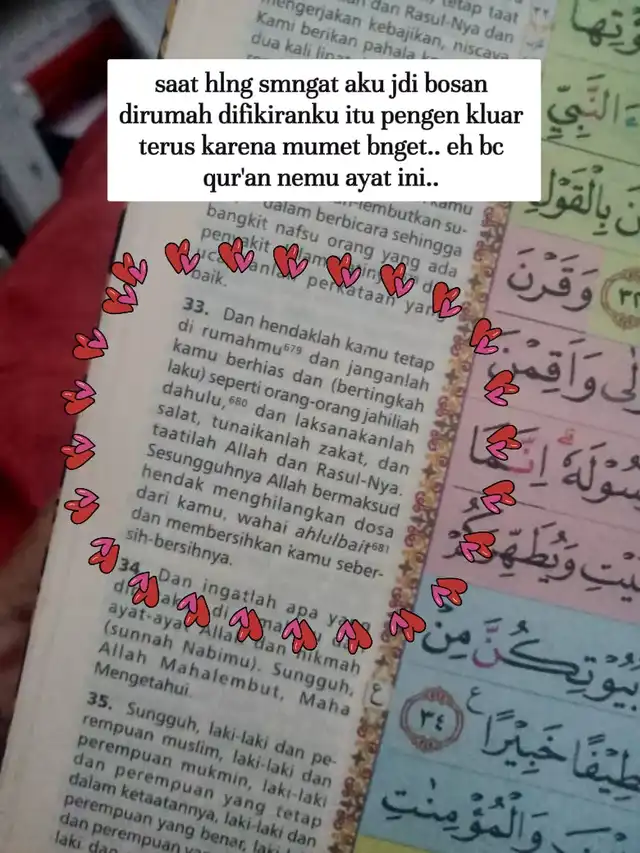 tetap taat
dan Rasul-Nya dan
mengerjakan kebajikan, niscaya
Kami berikan pahala
dua kali
saat hlng smngat aku jdi bosan
dirumah difikiranku itu pengen kluar
terus karena mumet bnget.. eh bc
qur'an nemu ayat ini..
kamu
lembutkan su-
dalam berbicara sehingga
bangkit nafsu orang yang ada
perkataan yang
baik.
33. Dan hendaklah kamu tetap
di rumahmu⁶⁷⁹ dan janganlah
kamu berhias dan (bertingkah
laku) seperti orang-orang jahiliah
dahulu,⁶⁸⁰ dan laksanakanlah
salat, tunaikanlah zakat, dan
taatilah Allah dan Rasul-Nya.
Sesungguhnya Allah bermaksud
hendak menghilangkan dosa
dari kamu, wahai ahlulbait⁶⁸¹
dan membersihkan kamu seber-
sih-bersihnya.
34. Dan ingatlah apa yang
di
ayat-ayat Allah dan hikmah
(sunnah Nabimu). Sungguh,
Allah Mahalembut, Maha
Mengetahui.
35. Sungguh, laki-laki dan pe-
rempuan muslim, laki-laki dan
perempuan mukmin, laki-laki
dan perempuan yang tetap
dalam ketaatannya, laki-laki dan
perempuan yang benar, laki-laki
dan perempuan yang
laki dan
النَّبِيِّ
بِالْقَوْلِ
٣٢ وَقَرْنَ
وَاَقِمْنَ
اِنَّمَا
وَيُطَهِّرَكُمْ
بُيُوْتِكُنَّ مِنْ
خَبِيْرًا ࣖ ٣٤
وَالْمُؤْمِنٰتِ